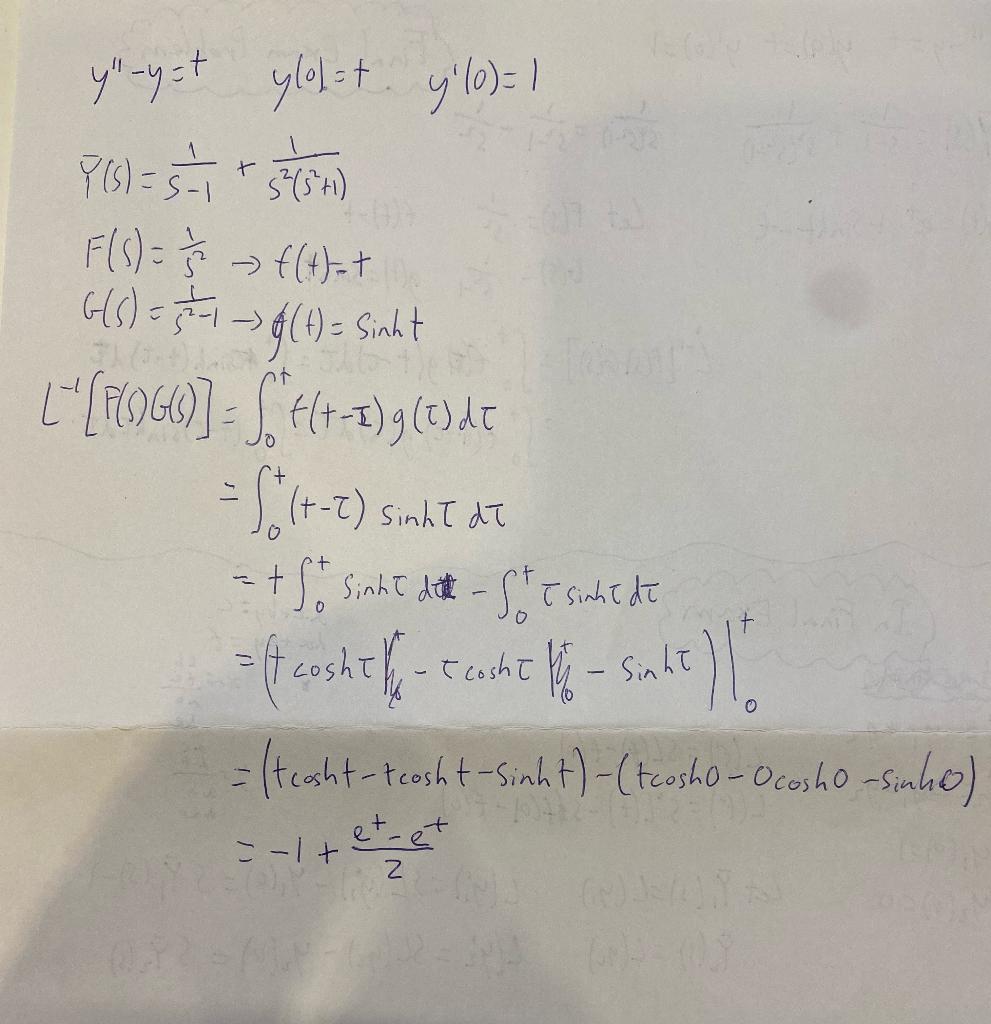 y'' - y = t y(0) = t y'(0) = 1
Y̅(s) = 1/(s-1) + 1/(s²(s²+1))
F(s) = 1/s² → f(t) = t
G(s) = 1/(s²-1) → g(t) = sinh t
L⁻¹[F(s)G(s)] = ∫₀ᵗ f(t-τ) g(τ) dτ
= ∫₀ᵗ (t-τ) sinh τ dτ
= t ∫₀ᵗ sinh τ dτ - ∫₀ᵗ τ sinh τ dτ
= (t cosh τ - τ cosh τ - sinh τ) |₀ᵗ
= (t cosh t - t cosh t - sinh t) - (t cosh 0 - 0 cosh 0 - sinh 0)
= -1 + (eᵗ - eᵗ)/2